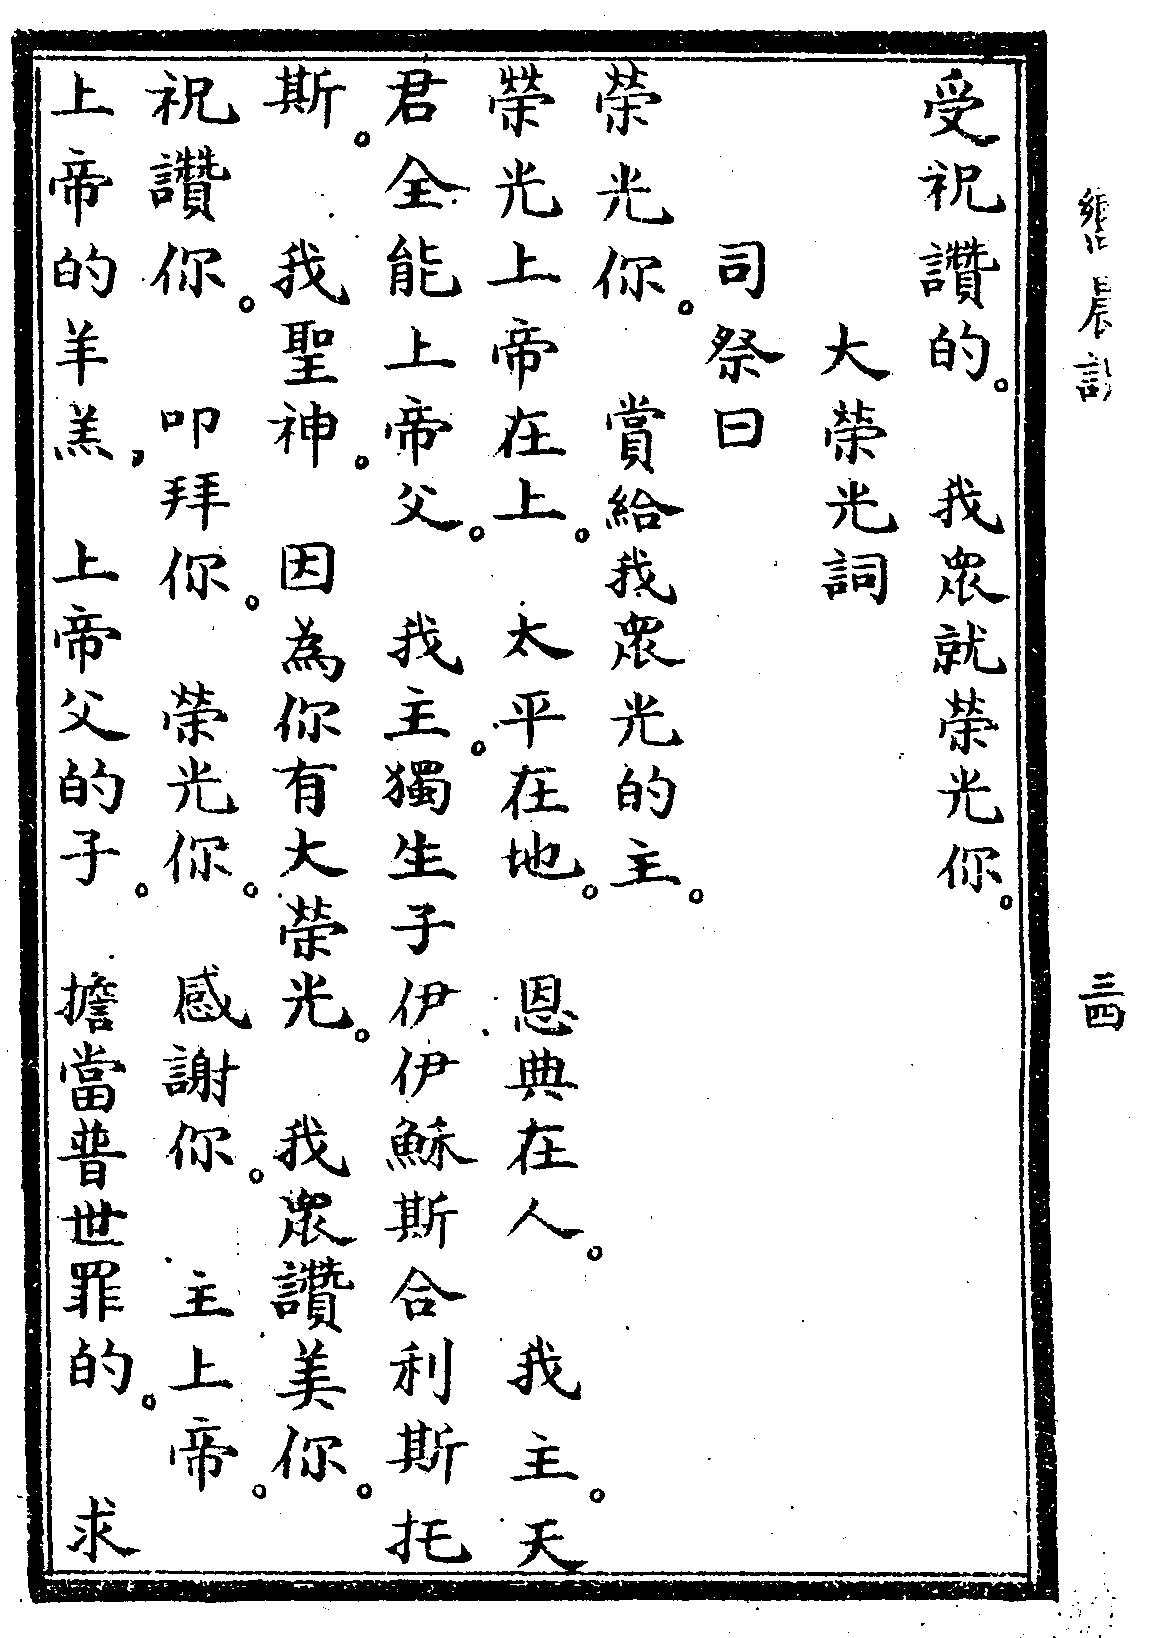 晨課
三四
受祝讚的。 我眾就榮光你。
大榮光詞
司祭曰
榮光你。 賞給我眾光的主。
榮光上帝在上。 太平在地。 恩典在人。 我主。天
君全能上帝父。 我主。獨生子伊伊穌斯合利斯托
斯。 我聖神。 因為你有大榮光。 我眾讚美你。
祝讚你。 叩拜你。 榮光你。 感謝你。 主上帝。
上帝的羊羔, 上帝父的子。 擔當普世罪的。 求